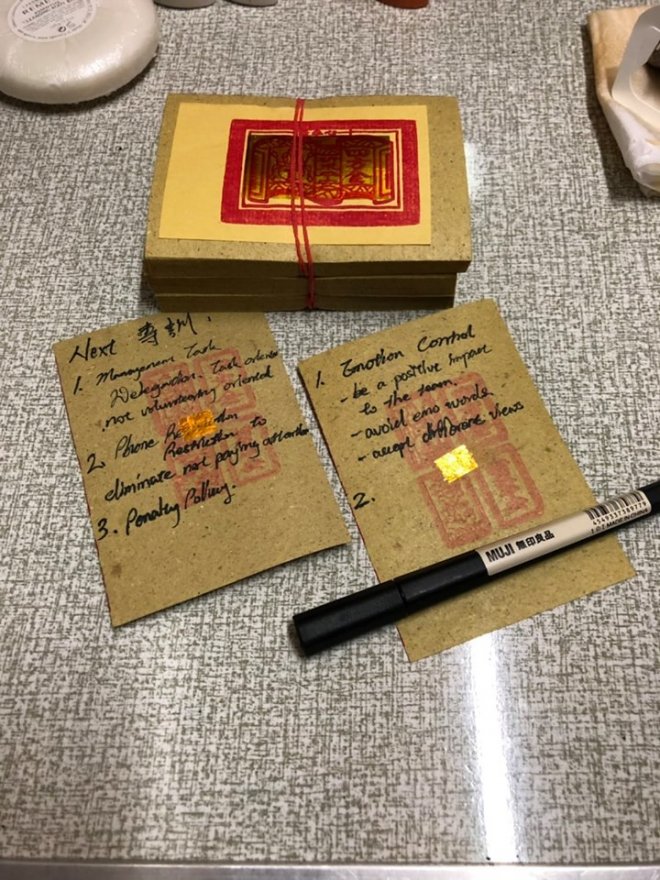 Next 專訓.
1. Management Task
Delegation Task oriented
not volunteering oriented
2. Phone
Restriction to
eliminate not paying attention
3.
1. Emotion Control
- be a positive impact
to the team.
- avoid emo words
- accept different views
2.
MUJI 無印良品
MADE IN CHINA